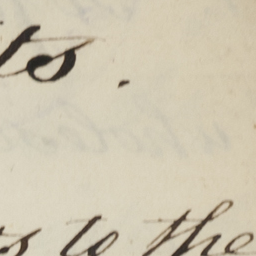 ts.
s to the